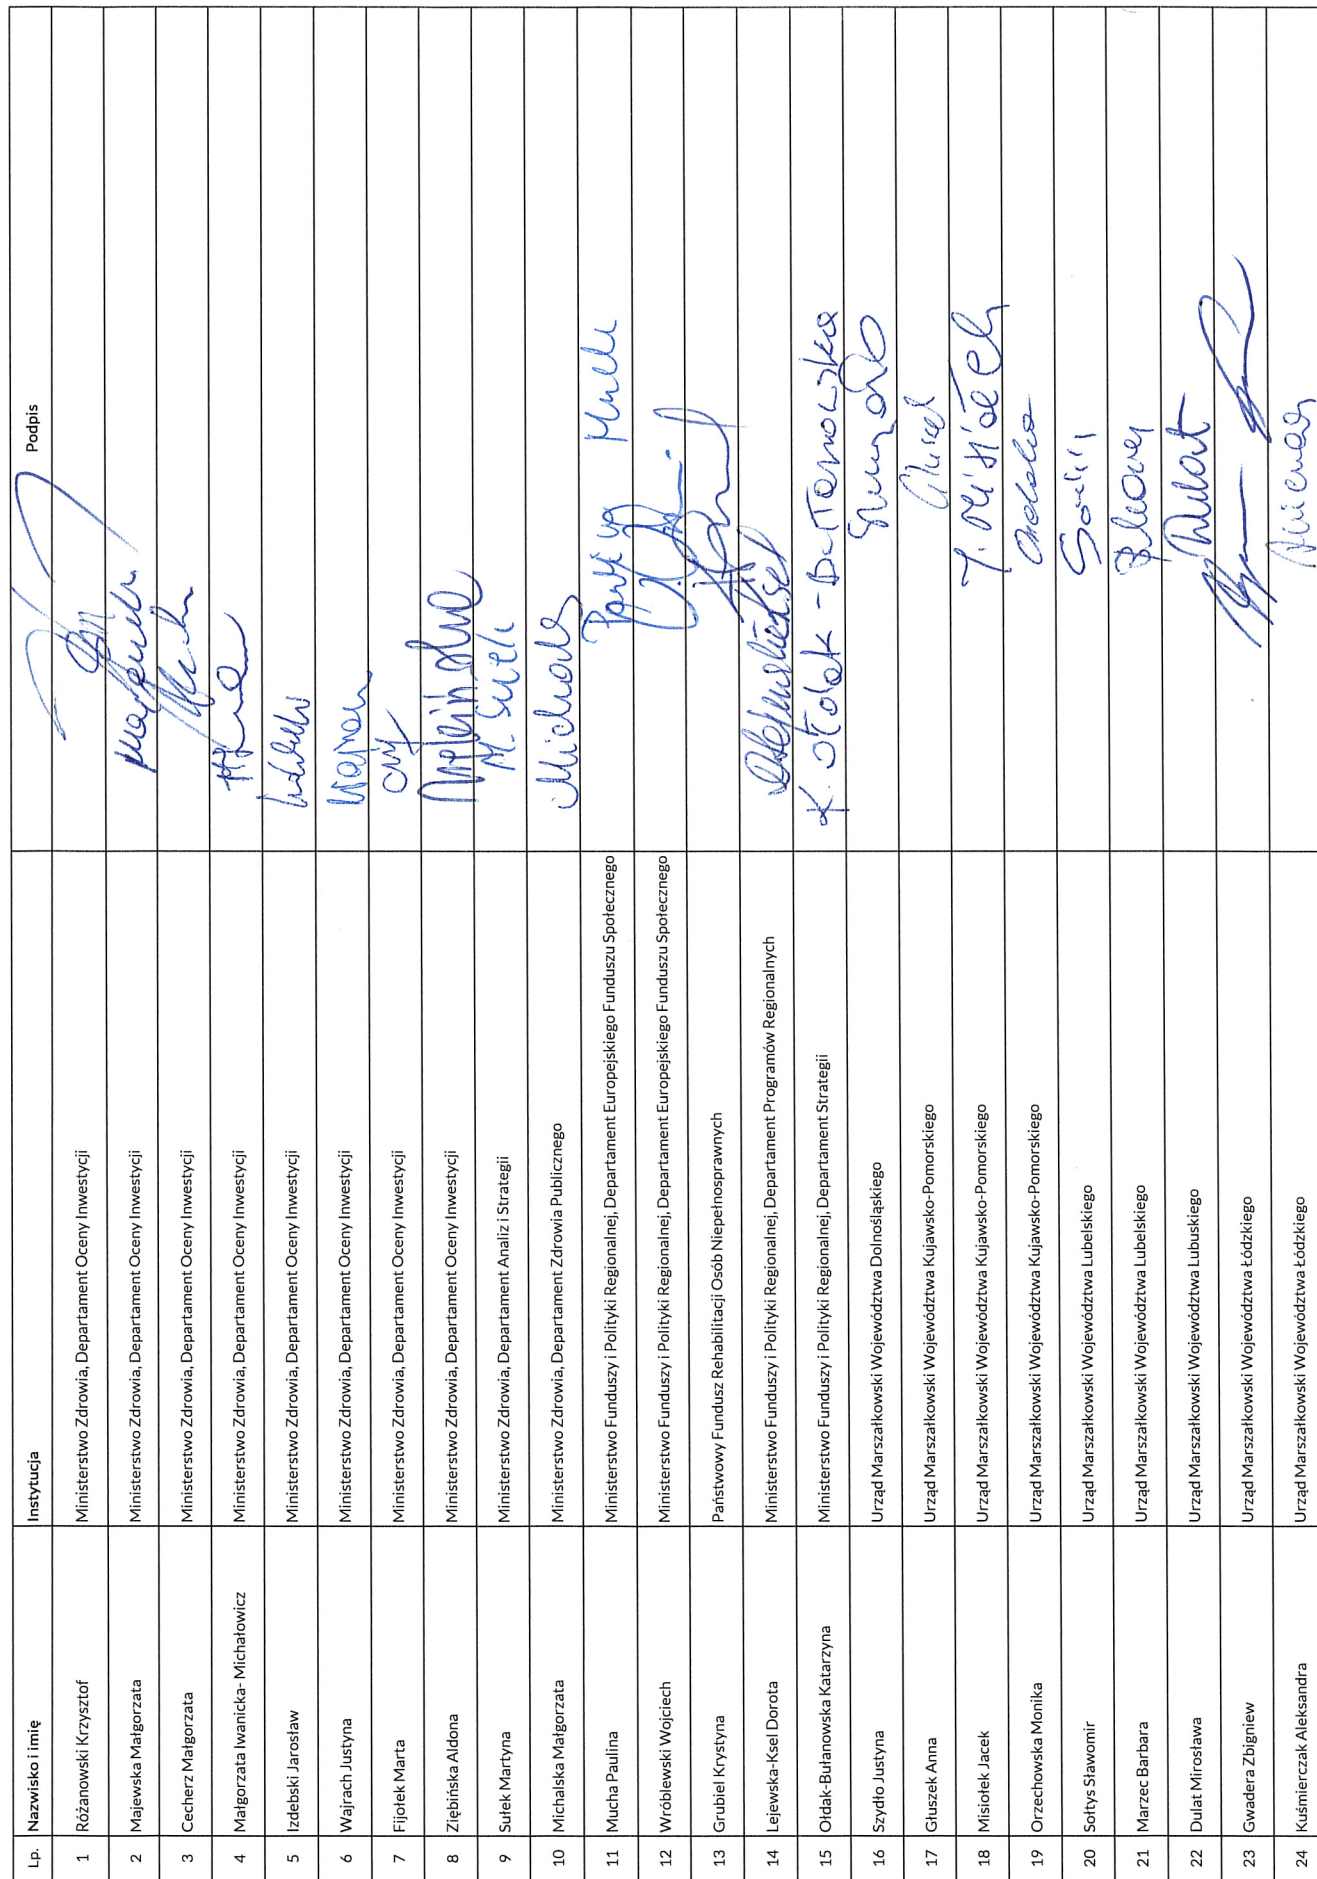 Lp. Nazwisko i imię Instytucja Podpis
1 Różanowski Krzysztof Ministerstwo Zdrowia, Departament Oceny Inwestycji
2 Majewska Małgorzata Ministerstwo Zdrowia, Departament Oceny Inwestycji
3 Cecherz Małgorzata Ministerstwo Zdrowia, Departament Oceny Inwestycji
4 Małgorzata Iwanicka- Michałowicz Ministerstwo Zdrowia, Departament Oceny Inwestycji
5 Izdebski Jarosław Ministerstwo Zdrowia, Departament Oceny Inwestycji
6 Wajrach Justyna Ministerstwo Zdrowia, Departament Oceny Inwestycji
7 Fijołek Marta Ministerstwo Zdrowia, Departament Oceny Inwestycji
8 Ziębińska Aldona Ministerstwo Zdrowia, Departament Oceny Inwestycji
9 Sułek Martyna Ministerstwo Zdrowia, Departament Analiz i Strategii M. Sułek
10 Michalska Małgorzata Ministerstwo Zdrowia, Departament Zdrowia Publicznego
11 Mucha Paulina Ministerstwo Funduszy i Polityki Regionalnej, Departament Europejskiego Funduszu Społecznego
12 Wróblewski Wojciech Ministerstwo Funduszy i Polityki Regionalnej, Departament Europejskiego Funduszu Społecznego
13 Grubiel Krystyna Państwowy Fundusz Rehabilitacji Osób Niepełnosprawnych
14 Lejewska-Ksel Dorota Ministerstwo Funduszy i Polityki Regionalnej, Departament Programów Regionalnych
15 Ołdak-Bułanowska Katarzyna Ministerstwo Funduszy i Polityki Regionalnej, Departament Strategii K. Ołdak-Bułanowska
16 Szydło Justyna Urząd Marszałkowski Województwa Dolnośląskiego
17 Głuszek Anna Urząd Marszałkowski Województwa Kujawsko-Pomorskiego
18 Misiołek Jacek Urząd Marszałkowski Województwa Kujawsko-Pomorskiego
19 Orzechowska Monika Urząd Marszałkowski Województwa Kujawsko-Pomorskiego
20 Sołtys Sławomir Urząd Marszałkowski Województwa Lubelskiego
21 Marzec Barbara Urząd Marszałkowski Województwa Lubelskiego
22 Dulat Mirosława Urząd Marszałkowski Województwa Lubuskiego Dulat
23 Gwadera Zbigniew Urząd Marszałkowski Województwa Łódzkiego
24 Kuśmierczak Aleksandra Urząd Marszałkowski Województwa Łódzkiego